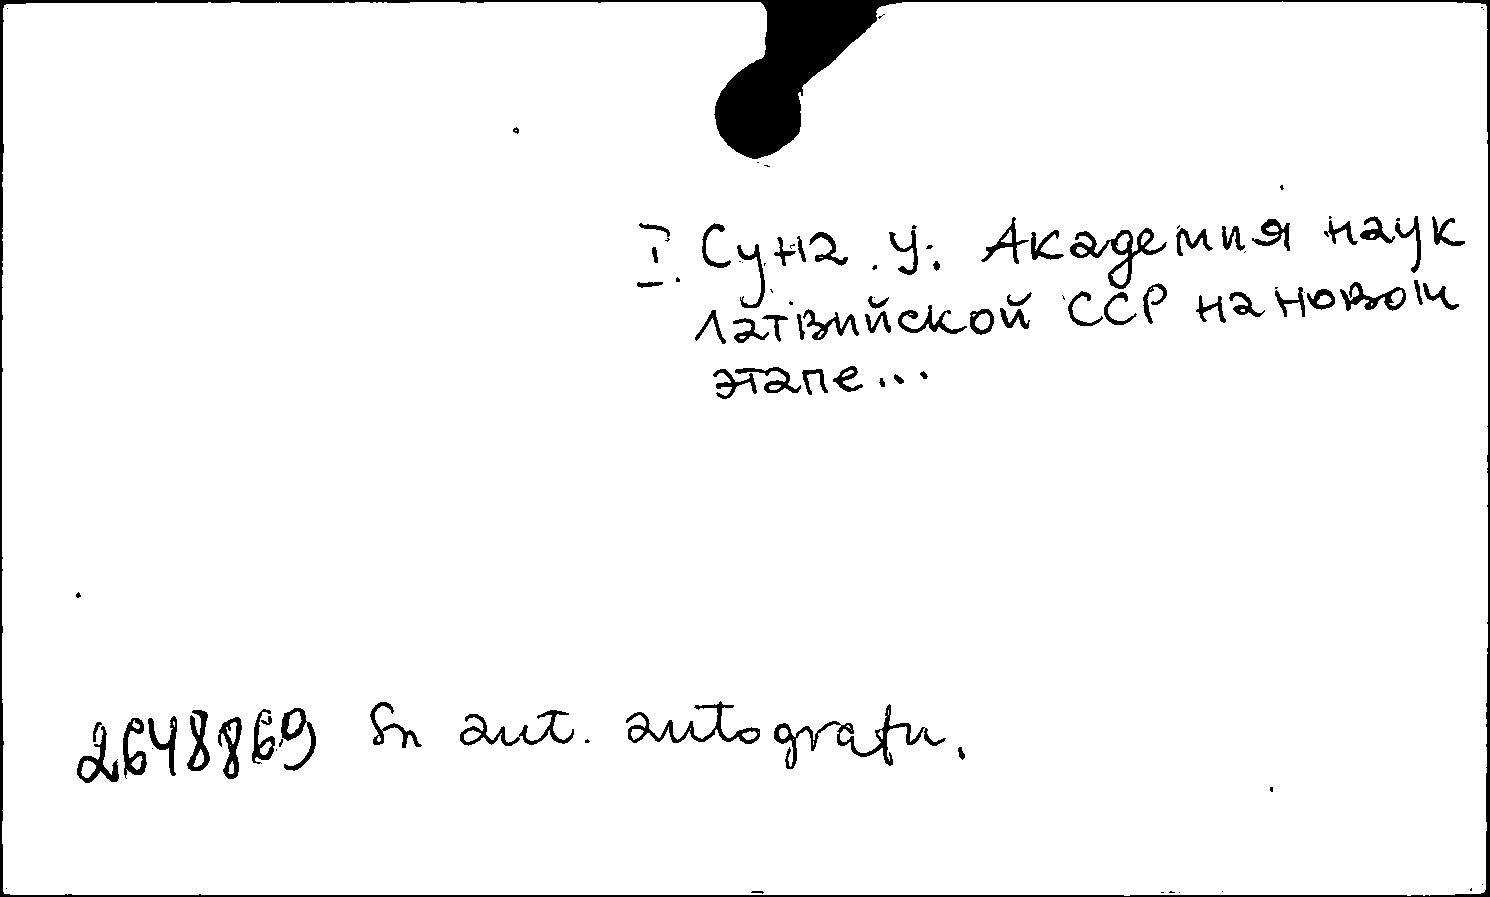 I. Суна. У: Академия наук
Латвийской ССР на новом
этапе...
2648869 Sn aut. autografu.